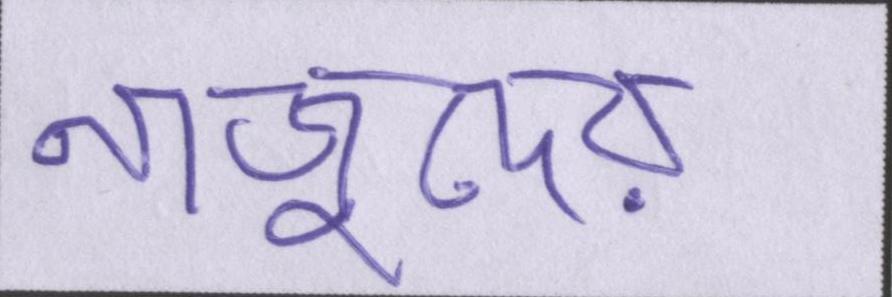 নাজুদের